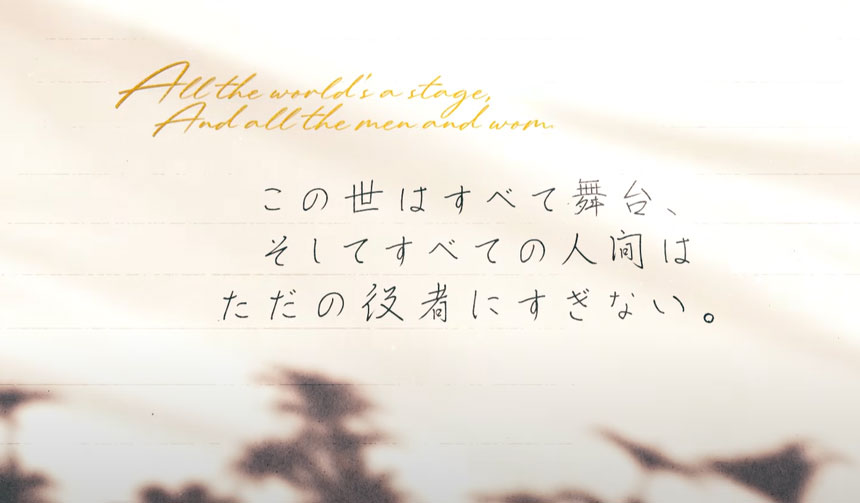 All the world's a stage,
And all the men and wom
この世はすべて舞台、
そしてすべての人間は
ただの役者にすぎない。